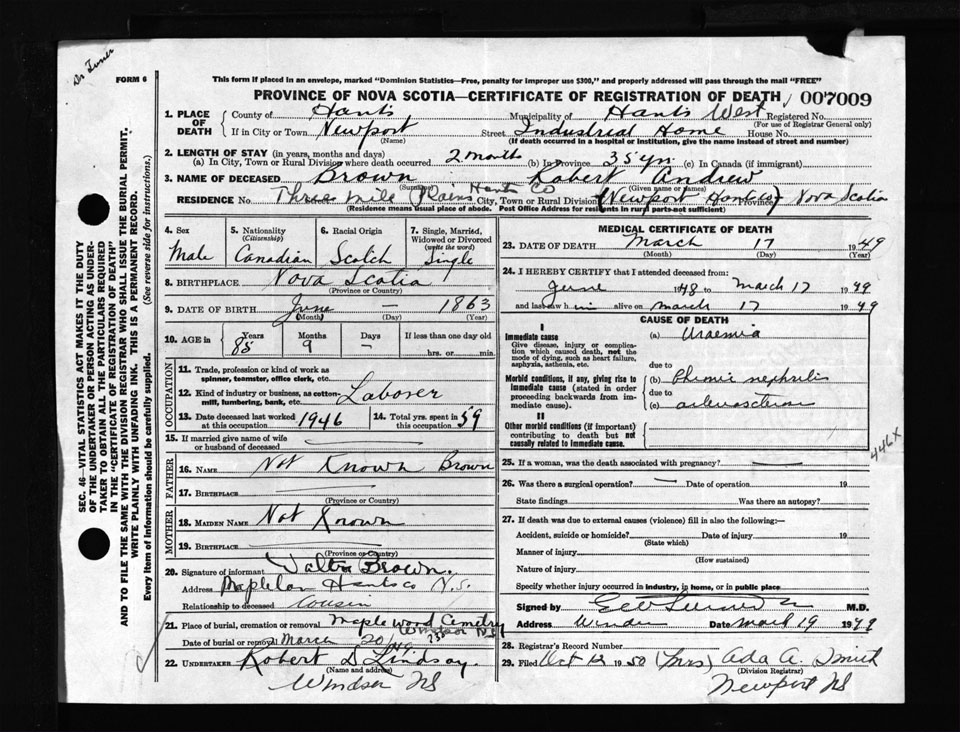 Dr Turner
FORM 6
This form if placed in an envelope, marked "Dominion Statistics—Free, penalty for improper use $300," and properly addressed will pass through the mail "FREE"
PROVINCE OF NOVA SCOTIA—CERTIFICATE OF REGISTRATION OF DEATH 007009
1. PLACE OF DEATH
County of Hants Municipality of Hants West Registered No.
(For use of Registrar General only)
If in City or Town Newport Street Industrial Home House No.
(Name) (If death occurred in a hospital or institution, give the name instead of street and number)
2. LENGTH OF STAY (in years, months and days)
(a) In City, Town or Rural Division where death occurred 2 months (b) In Province 35 yrs (c) In Canada (if immigrant)
3. NAME OF DECEASED Brown Robert Andrew
(Surname) (Given name or names)
RESIDENCE No. Three mile Plains Hants Co City, Town or Rural Division (Newport Hants Co) Province Nova Scotia
(Residence means usual place of abode. Post Office Address for residents in rural parts not sufficient)
4. Sex
Male
5. Nationality
(Citizenship)
Canadian
6. Racial Origin
Scotch
7. Single, Married, Widowed or Divorced
(write the word)
Single
8. BIRTHPLACE Nova Scotia
(Province or Country)
9. DATE OF BIRTH June — 1863
(Month) (Day) (Year)
10. AGE in Years Months Days If less than one day old
85 9 — hrs. or min.
OCCUPATION
11. Trade, profession or kind of work as spinner, teamster, office clerk, etc.
12. Kind of industry or business, as cotton-mill, lumbering, bank, etc. Laborer
13. Date deceased last worked at this occupation 1946
14. Total yrs. spent in this occupation 59
15. If married give name of wife or husband of deceased
FATHER
16. NAME Not Known Brown
17. BIRTHPLACE
(Province or Country)
MOTHER
18. MAIDEN NAME Not Known
19. BIRTHPLACE
(Province or Country)
20. Signature of informant Walter Brown.
Address Hants Co N.S.
Relationship to deceased Cousin
21. Place of burial, cremation or removal Maplewood Cemetry
Windsor NS
Date of burial or removal March 20
22. UNDERTAKER Robert D Lindsay.
(Name and address)
Windsor NS
MEDICAL CERTIFICATE OF DEATH
23. DATE OF DEATH March 17 1949
(Month) (Day) (Year)
24. I HEREBY CERTIFY that I attended deceased from:
June 1948 to March 17 1949
and last saw him alive on March 17 1949
CAUSE OF DEATH
I
Immediate cause
Give disease, injury or complication which caused death, not the mode of dying, such as heart failure, asphyxia, asthenia, etc.
(a) Uraemia
due to
Morbid conditions, if any, giving rise to immediate cause (stated in order proceeding backwards from immediate cause).
(b) Chronic nephritis
due to
(c)
II
Other morbid conditions (if important) contributing to death but not causally related to immediate cause.
446X
25. If a woman, was the death associated with pregnancy?
26. Was there a surgical operation? — Date of operation 19
State findings Was there an autopsy?
27. If death was due to external causes (violence) fill in also the following:—
Accident, suicide or homicide? Date of injury 19
(State which)
Manner of injury
(How sustained)
Nature of injury
Specify whether injury occurred in industry, in home, or in public place
Signed by M.D.
Address Windsor Date March 19 1949
28. Registrar's Record Number
29. Filed Oct 12 1950 (Mrs) Ada A. Smith
(Division Registrar)
Newport NS
SEC. 46—VITAL STATISTICS ACT MAKES IT THE DUTY
OF THE UNDERTAKER OR PERSON ACTING AS UNDER-
TAKER TO OBTAIN ALL THE PARTICULARS REQUIRED
IN THE "CERTIFICATE OF REGISTRATION OF DEATH"
AND TO FILE THE SAME WITH THE DIVISION REGISTRAR WHO SHALL ISSUE THE BURIAL PERMIT.
WRITE PLAINLY WITH UNFADING INK. THIS IS A PERMANENT RECORD.
Every item of Information should be carefully supplied. (See reverse side for instructions.)